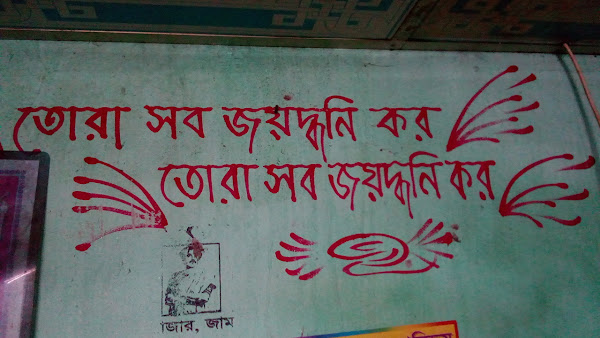 তোরা সব জয়দ্ধনি কর
তোরা সব জয়দ্ধনি কর
াজার, জাম